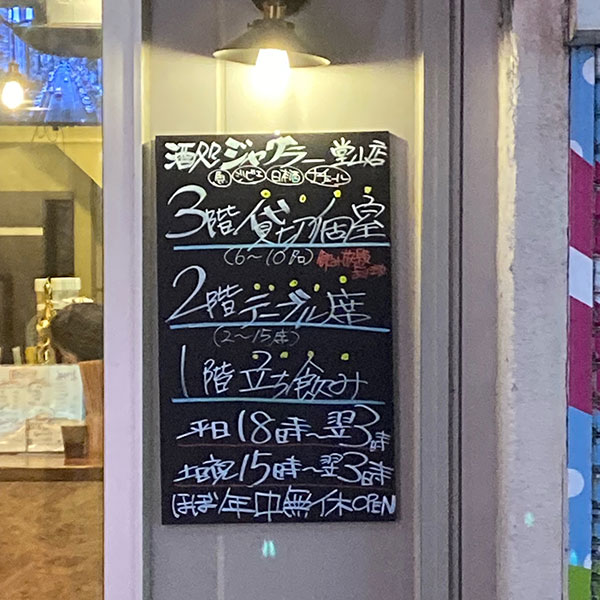 酒処 ジャックラー 堂山店
魚 ジビエ 日本酒 ナチュール
3階 貸切個室
(6~10名)
2階 テーブル席
(2~15席)
1階 立ち飲み
平日18時~翌3時
土日祝15時~翌3時
ほぼ年中無休OPEN